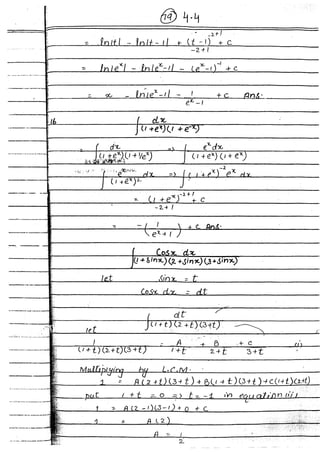 (19) 4.4
= ln|t| - ln|t-1| + (t-1)^{-2+1} / (-2+1) + c
= ln|e^x| - ln|e^x-1| - (e^x-1)^{-1} + c
= x - ln|e^x-1| - 1/(e^x-1) + c Ans.
16 ∫ dx / (1+e^x)(1+e^{-x})
∫ dx / (1+e^x)(1+1/e^x) => ∫ e^x dx / (1+e^x)(1+e^x)
∫ e^x / (1+e^x)^2 dx => ∫ (1+e^x)^{-2} e^x dx
= (1+e^x)^{-2+1} / (-2+1) + c
= - (1/(e^x+1)) + c Ans.
∫ Cosx dx / (1+Sinx)(2+Sinx)(3+Sinx)
let Sinx = t
Cosx dx = dt
∫ dt / (1+t)(2+t)(3+t)
let
1/(1+t)(2+t)(3+t) = A/(1+t) + B/(2+t) + C/(3+t) (i)
Multiplying by L.C.M.
1 = A(2+t)(3+t) + B(1+t)(3+t) + C(1+t)(2+t)
put 1+t = 0 => t = -1 in equation (i)
1 = A(2-1)(3-1) + 0 + C
1 = A(2)
A = 1/2